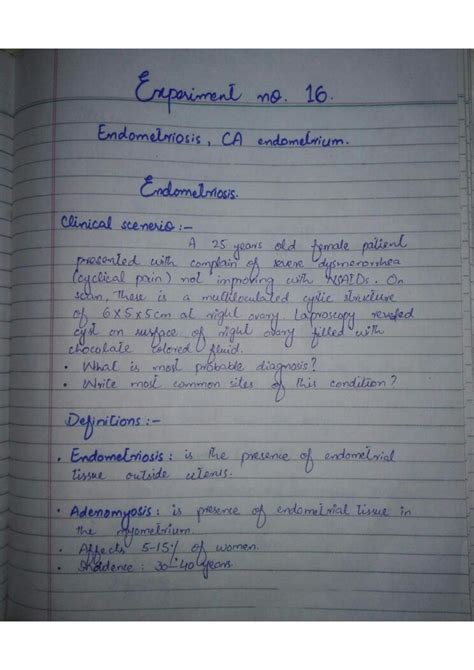 Experiment no. 16.
Endometriosis, CA endometrium.
Endometriosis.
Clinical scenerio :-
A 25 years old female patient
presented with complain of severe dysmenorrhea
(cyclical pain) not improving with NSAIDs. On
scan, there is a multiloculated cystic structure
of 6x5x5cm at right ovary laproscopy reveled
cyst on surface of right ovary filled with
chocolate colored fluid.
• What is most probable diagnosis?
• Write most common sites of this condition?
Definitions :-
• Endometriosis : is the presence of endometrial
tissue outside uterus.
• Adenomyosis : is presence of endometrial tissue in
the myometrium.
• Affects 5-15% of women.
• Incidence : 30-40 years